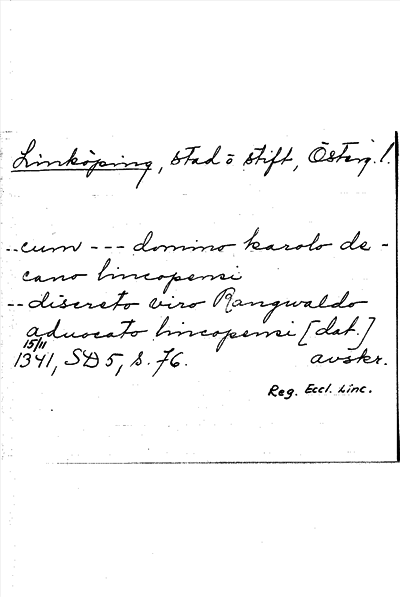 Linköping, stad o stift, Österg. l.
-- cum --- domino karolo de -
cano lincopensi
-- discreto viro Rangwaldo
aduocato lincopensi [dat.]
15/11
1341, SD 5, s. 76. avskr.
Reg. Eccl. Linc.